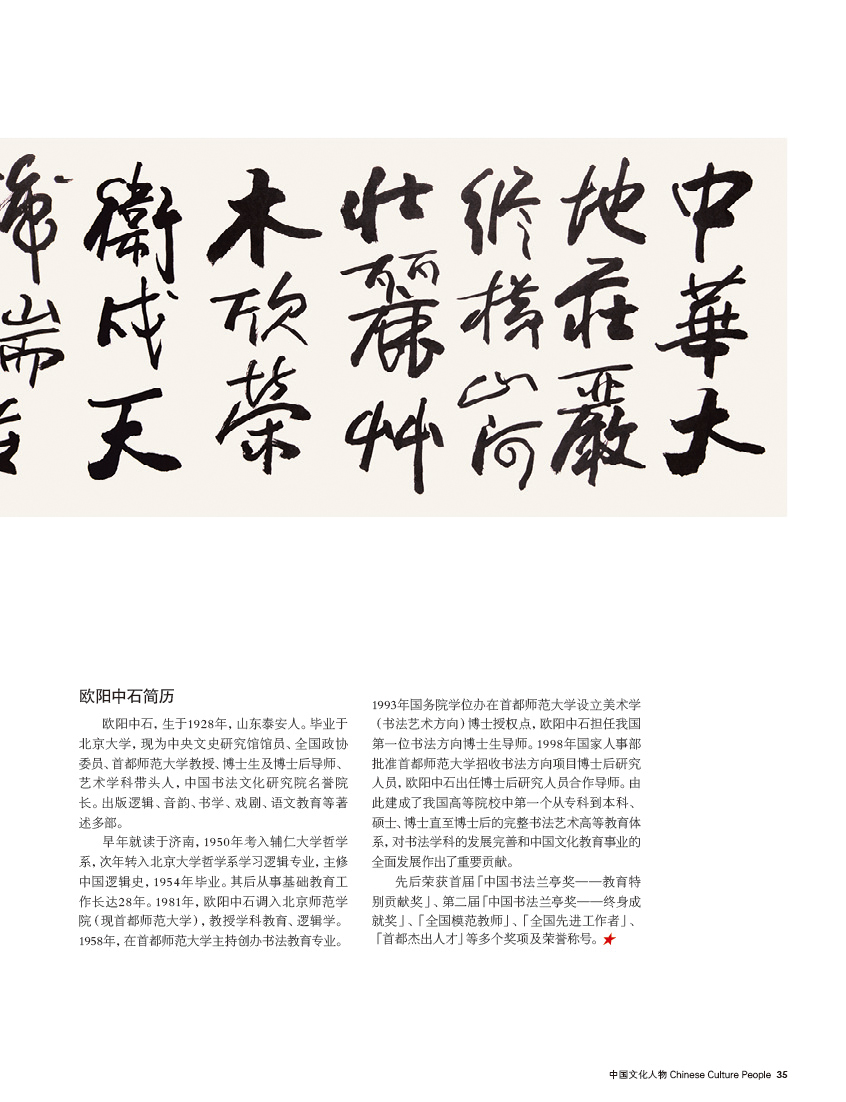 中華大
地莊嚴
縱橫山河
壯麗艸
木欣榮
衛成天
欧阳中石简历
欧阳中石，生于1928年，山东泰安人。毕业于
北京大学，现为中央文史研究馆馆员、全国政协
委员、首都师范大学教授、博士生及博士后导师、
艺术学科带头人，中国书法文化研究院名誉院
长。出版逻辑、音韵、书学、戏剧、语文教育等著
述多部。
早年就读于济南，1950年考入辅仁大学哲学
系，次年转入北京大学哲学系学习逻辑专业，主修
中国逻辑史，1954年毕业。其后从事基础教育工
作长达28年。1981年，欧阳中石调入北京师范学
院（现首都师范大学），教授学科教育、逻辑学。
1958年，在首都师范大学主持创办书法教育专业。
1993年国务院学位办在首都师范大学设立美术学
（书法艺术方向）博士授权点，欧阳中石担任我国
第一位书法方向博士生导师。1998年国家人事部
批准首都师范大学招收书法方向项目博士后研究
人员，欧阳中石出任博士后研究人员合作导师。由
此建成了我国高等院校中第一个从专科到本科、
硕士、博士直至博士后的完整书法艺术高等教育体
系，对书法学科的发展完善和中国文化教育事业的
全面发展作出了重要贡献。
先后荣获首届「中国书法兰亭奖——教育特
别贡献奖」、第二届「中国书法兰亭奖——终身成
就奖」、「全国模范教师」、「全国先进工作者」、
「首都杰出人才」等多个奖项及荣誉称号。★
中国文化人物 Chinese Culture People 35